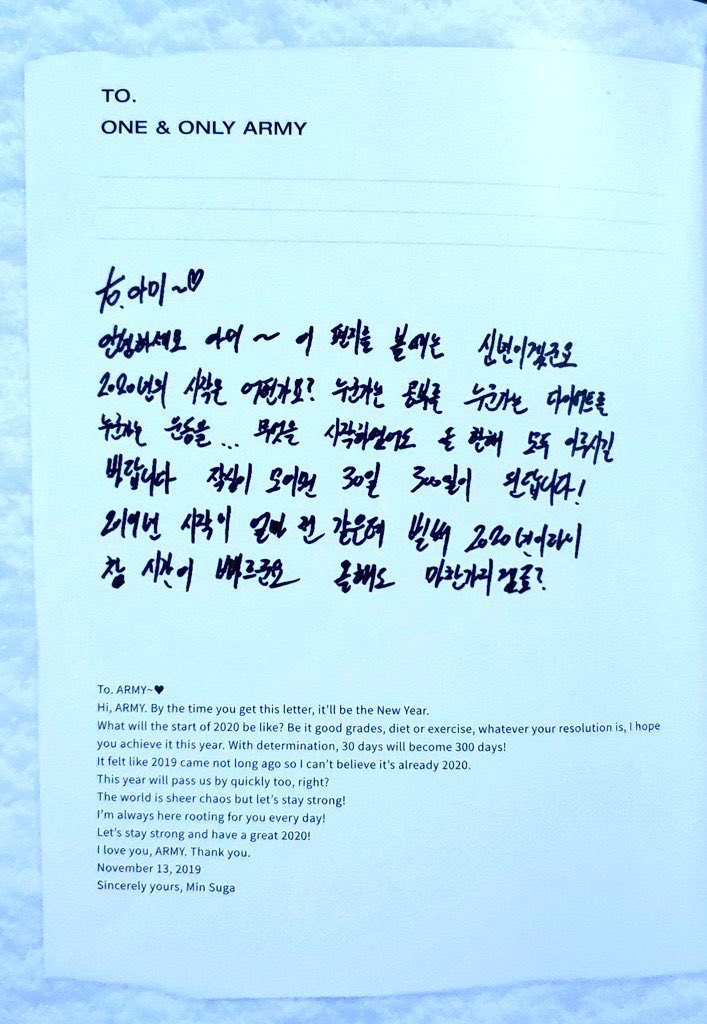 TO.
ONE & ONLY ARMY
to. 아미~♡
안녕하세요 아미~ 이 편지를 볼 때는 신년이겠군요
2020년의 시작은 어떤가요? 누군가는 공부를 누군가는 다이어트를
누군가는 운동을... 무엇을 시작하였어도 올 한해 모두 이루시길
바랍니다 작심이 모이면 30일 300일이 된답니다!
2019년 시작이 얼마 전 같은데 벌써 2020년이라니
참 시간이 빠르군요 올해도 마찬가지겠죠?
To. ARMY~♥
Hi, ARMY. By the time you get this letter, it'll be the New Year.
What will the start of 2020 be like? Be it good grades, diet or exercise, whatever your resolution is, I hope
you achieve it this year. With determination, 30 days will become 300 days!
It felt like 2019 came not long ago so I can't believe it's already 2020.
This year will pass us by quickly too, right?
The world is sheer chaos but let's stay strong!
I'm always here rooting for you every day!
Let's stay strong and have a great 2020!
I love you, ARMY. Thank you.
November 13, 2019
Sincerely yours, Min Suga